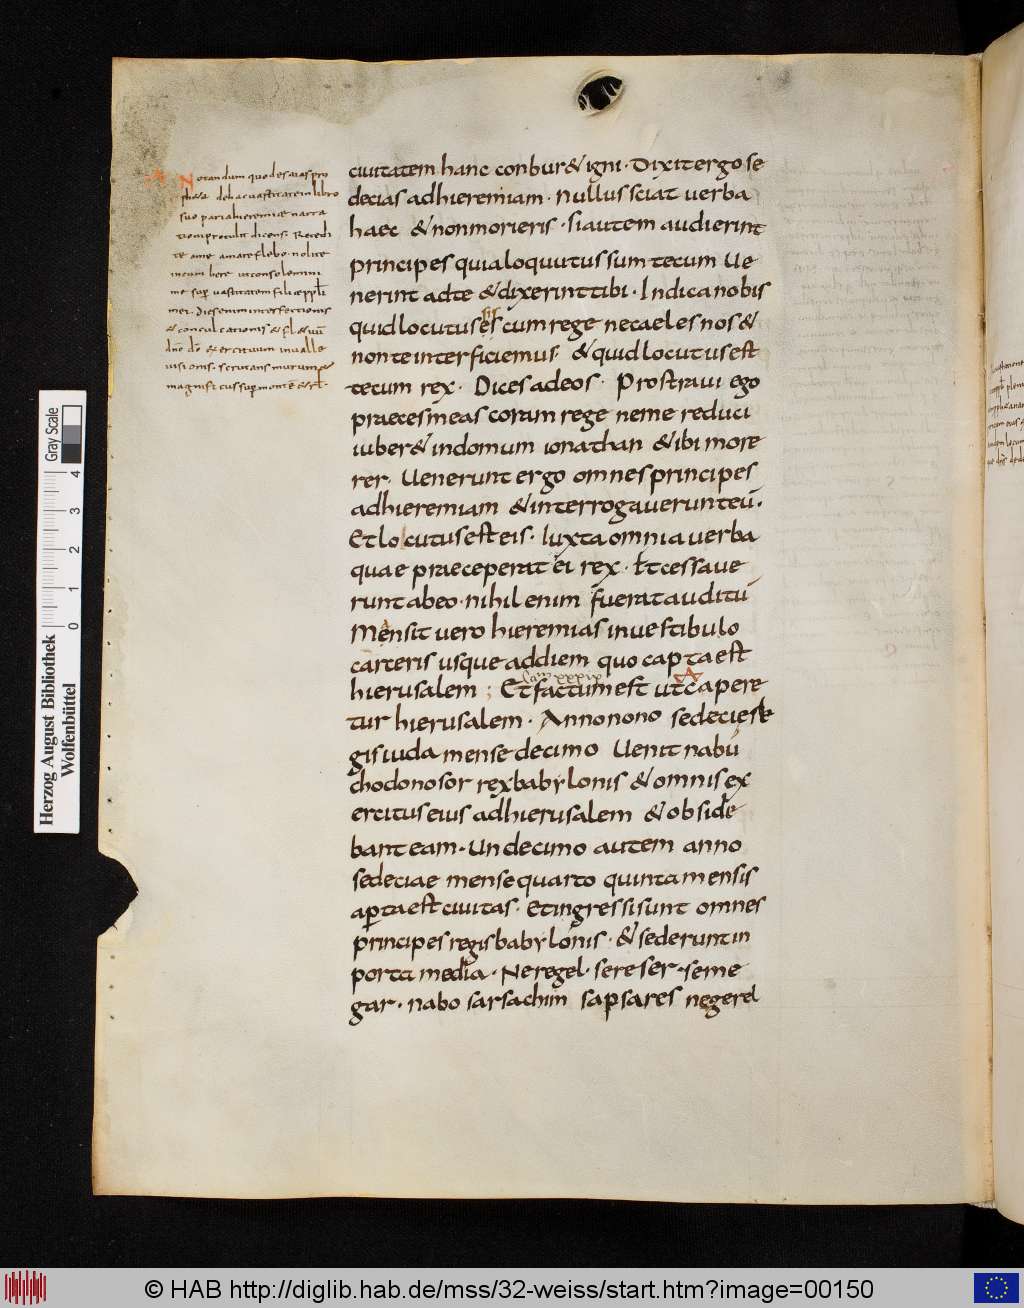 Notandum quod esaias pro
pheta de hac vastitate in libro
suo paria hieremiae narra
tiom protulit dicens. Recedi
te a me amare flebo. nolite
incum bere ut consolemini
me sup vastitatem filiae ppli
mei. Dies enim interfectionis
& conculcationis & fl&uū
dnō dō exercituum in ualle
uisionis. scrutans murum &
magnificus sup montē & rl.
ciuitatem hanc conbur& igni · Dixit ergo se
decias ad hieremiam · Nullus sciat uerba
haec & non morieris · si autem audierint
principes quia loquutus sum tecum Ue
nerint ad te & dixerint tibi · Indica nobis
quid locutus es cum rege ne caeles nos &
non te interficiemus · & quid locutus est
tecum rex · Dices ad eos · Prostraui ego
praeces meas coram rege ne me reduci
iuber& in domum ionathan & ibi more
rer · Uenerunt ergo omnes principes
ad hieremiam & interrogauerunt eū ·
Et locutus est eis · Iuxta omnia uerba
quae praeceperat ei rex · Et cessaue
runt ab eo · nihil enim fuerat auditū
Mansit uero hieremias in uestibulo
carceris usque ad diem quo capta est
hierusalem ; Et factum est ut capere
tur hierusalem · Anno nono sedeciae re
gis iuda mense decimo Uenit nabu
chodonosor rex babylonis & omnis ex
ercitus eius ad hierusalem & obside
bant eam · Undecimo autem anno
sedeciae mense quarto quinta mensis
aperta est ciuitas · Et ingressi sunt omnes
principes regis babylonis · & sederunt in
porta media · Neregel · sereser · seme
gar · nabo sarsachim sapsares negerel
Herzog August Bibliothek
Wolfenbüttel
0 1 2 3 4
Gray Scale
© HAB http://diglib.hab.de/mss/32-weiss/start.htm?image=00150